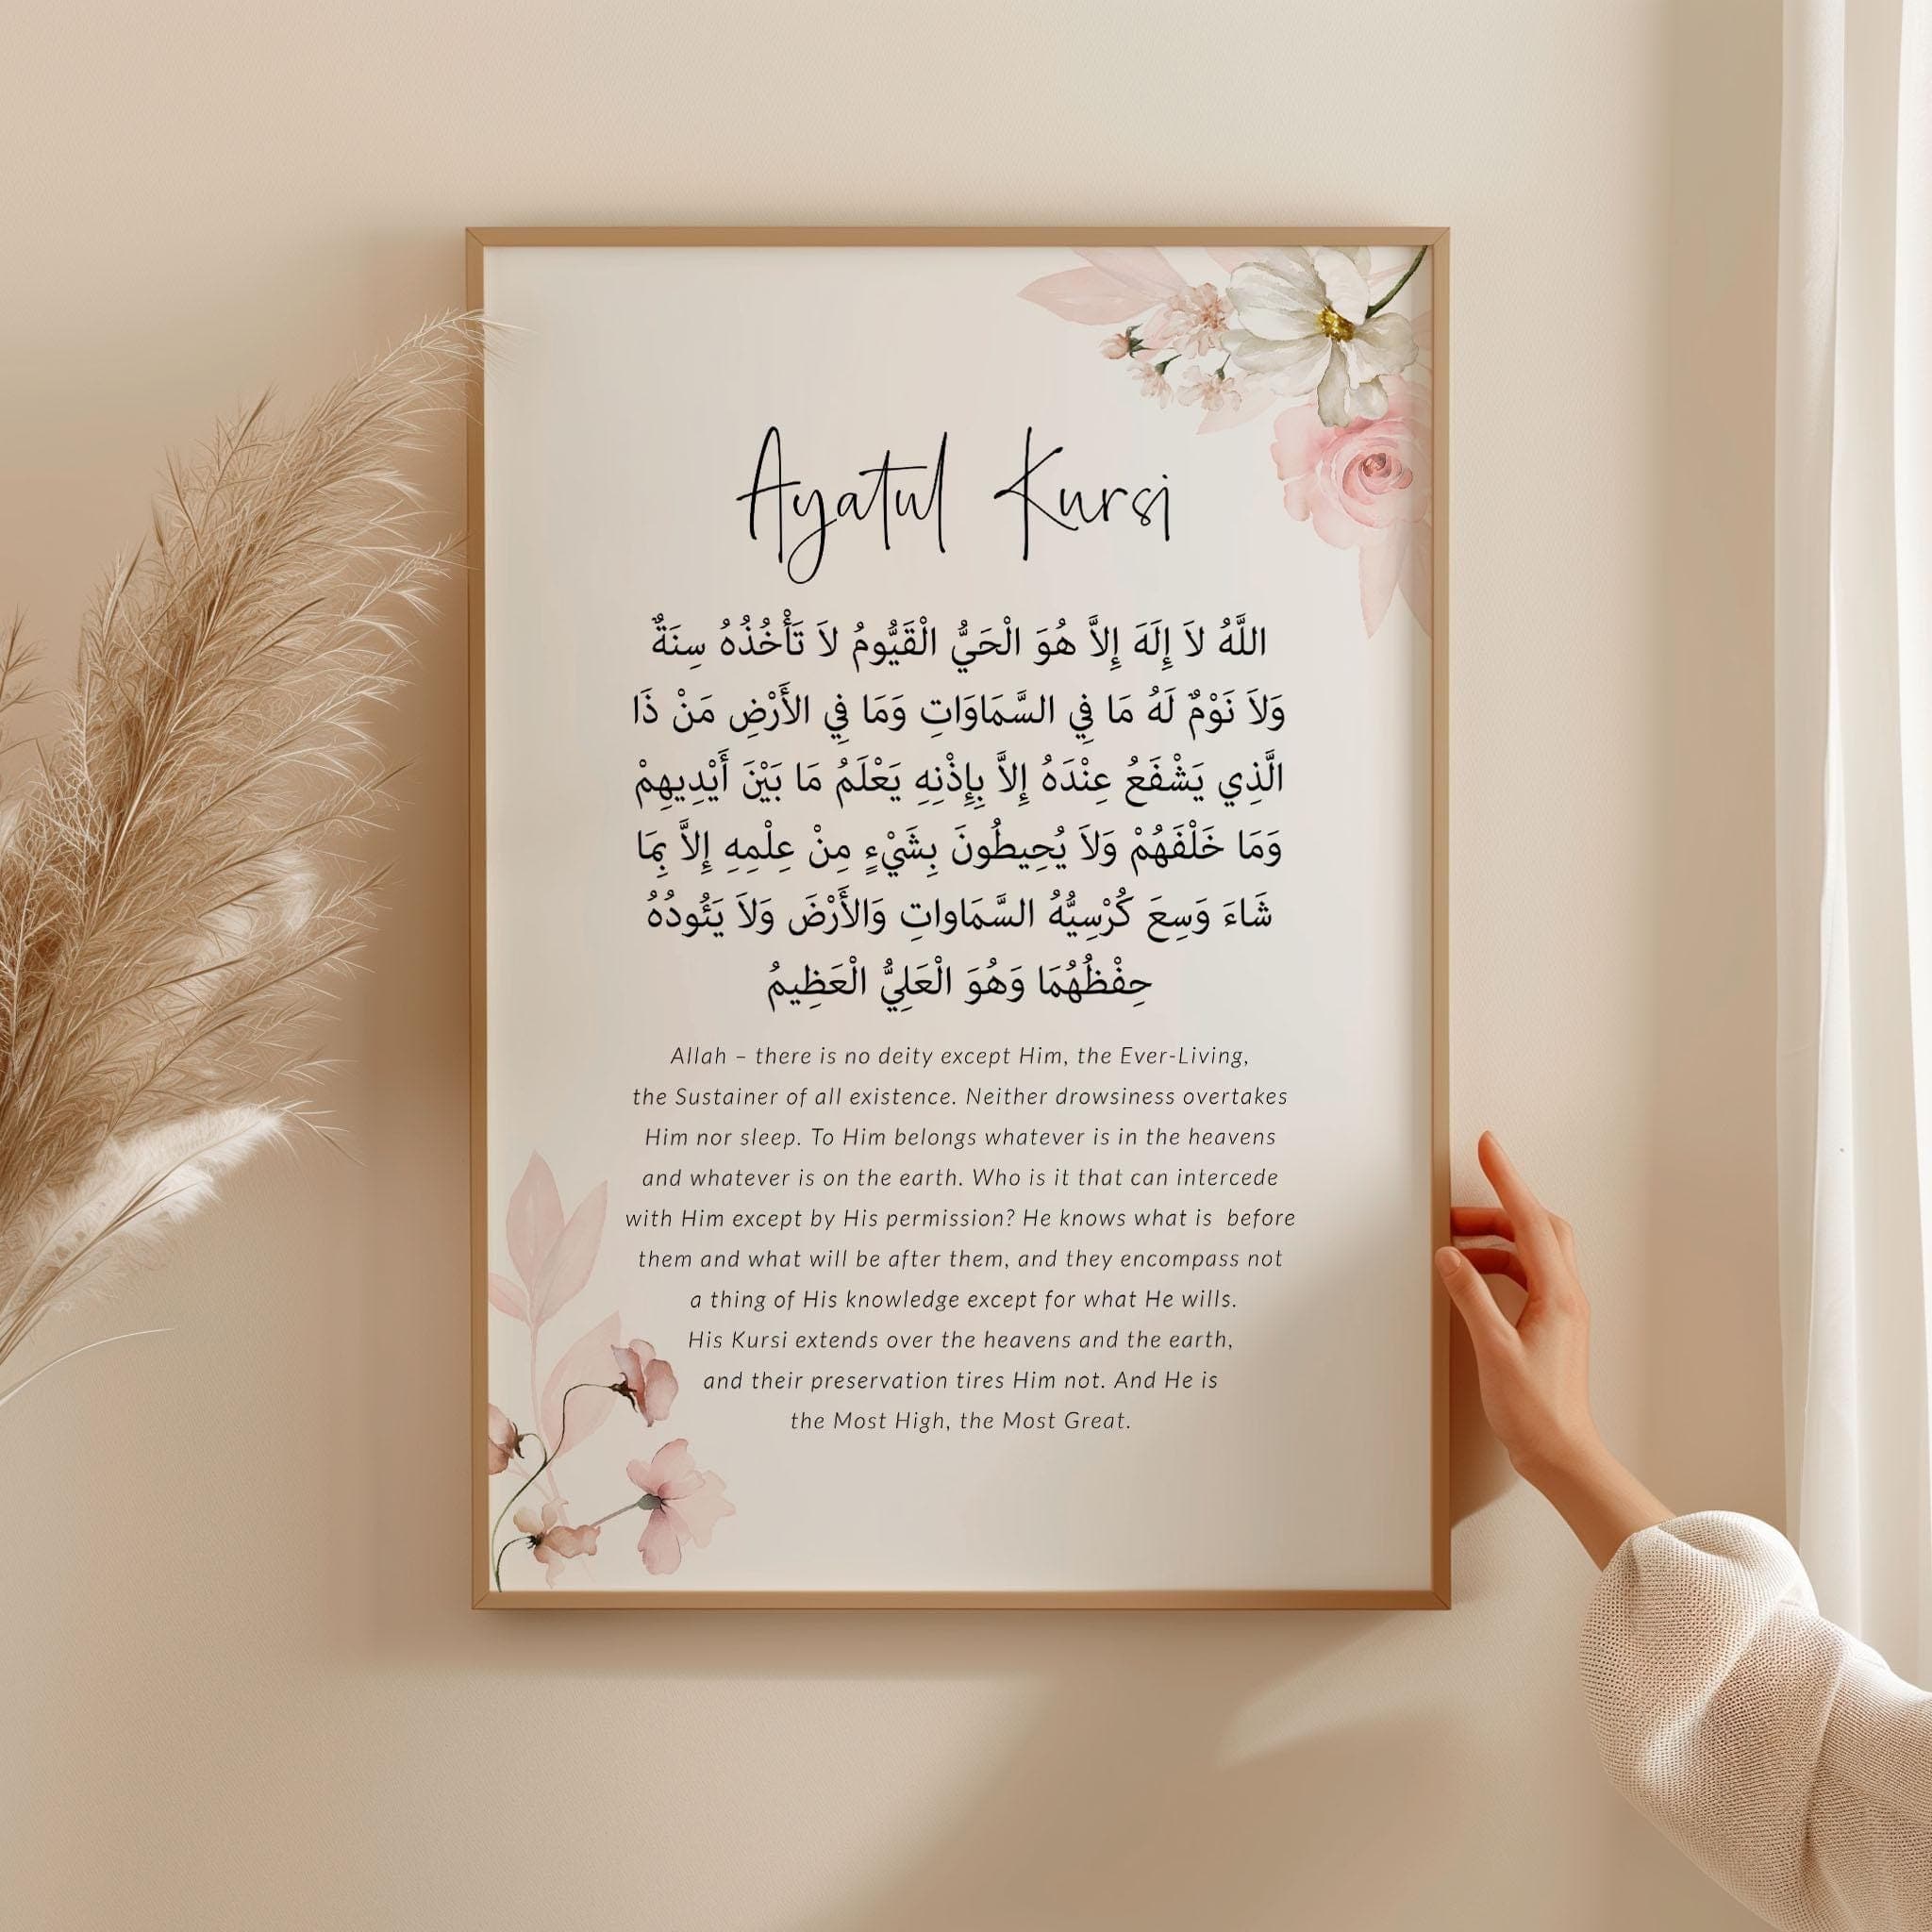 Ayatul Kursi
اللَّهُ لاَ إِلَهَ إِلاَّ هُوَ الْحَيُّ الْقَيُّومُ لاَ تَأْخُذُهُ سِنَةٌ
وَلاَ نَوْمٌ لَهُ مَا فِي السَّمَاوَاتِ وَمَا فِي الأَرْضِ مَنْ ذَا
الَّذِي يَشْفَعُ عِنْدَهُ إِلاَّ بِإِذْنِهِ يَعْلَمُ مَا بَيْنَ أَيْدِيهِمْ
وَمَا خَلْفَهُمْ وَلاَ يُحِيطُونَ بِشَيْءٍ مِنْ عِلْمِهِ إِلاَّ بِمَا
شَاءَ وَسِعَ كُرْسِيُّهُ السَّمَاواتِ وَالأَرْضَ وَلاَ يَئُودُهُ
حِفْظُهُمَا وَهُوَ الْعَلِيُّ الْعَظِيمُ
Allah – there is no deity except Him, the Ever-Living,
the Sustainer of all existence. Neither drowsiness overtakes
Him nor sleep. To Him belongs whatever is in the heavens
and whatever is on the earth. Who is it that can intercede
with Him except by His permission? He knows what is  before
them and what will be after them, and they encompass not
a thing of His knowledge except for what He wills.
His Kursi extends over the heavens and the earth,
and their preservation tires Him not. And He is
the Most High, the Most Great.